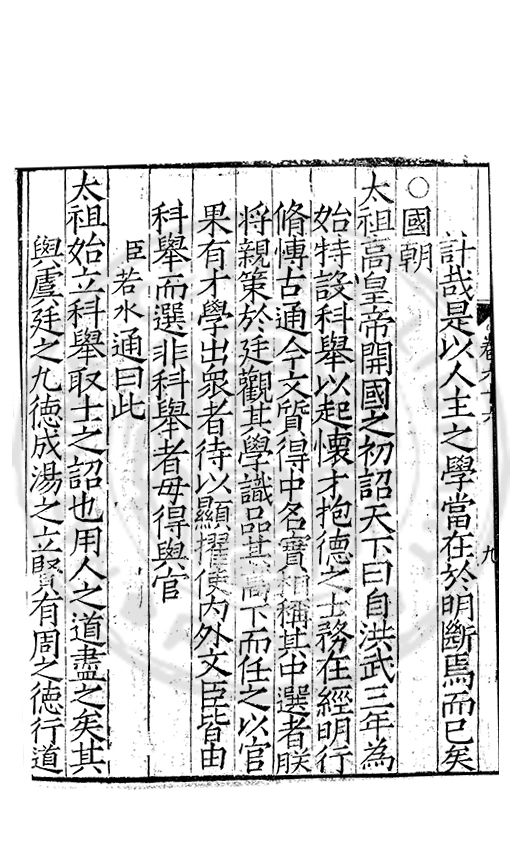 計哉是以人主之學當在於明斷焉而已矣
○國朝
太祖高皇帝開國之初詔天下曰自洪武三年為
始特設科舉以起懷才抱德之士務在經明行
脩愽古通今文質得中名實相稱其中選者朕
將親策於廷觀其學識品其高下而任之以官
果有才學出衆者待以顯擢使内外文臣皆由
科舉而選非科舉者毋得與官
臣若水通曰此
太祖始立科舉取士之詔也用人之道盡之矣其
與虞廷之九德成湯之立賢有周之德行道